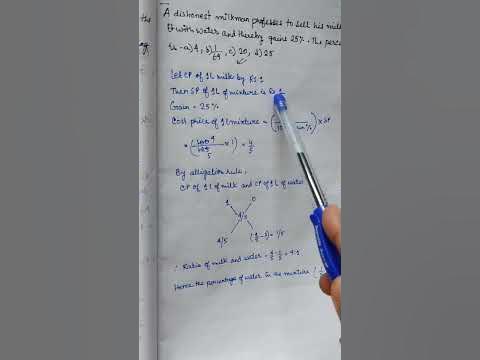 A dishonest milkman professes to sell his milk
with water and thereby gains 25%. The perce
is - a) 4, b) 1/64, c) 20, d) 25
Let CP of 1L milk by Rs. 1
Then SP of 1L of mixture is Rs. 1
Gain = 25%
Cost price of 1L mixture = ( ) × SP
× 1) = 4/5
By alligation rule,
CP of 1L of milk and CP of 1L of water
1 0
4/5
4/5 = 1/5
∴ Ratio of milk and water = 4/5 : 1/5 = 4:1
Hence the percentage of water in the mixture